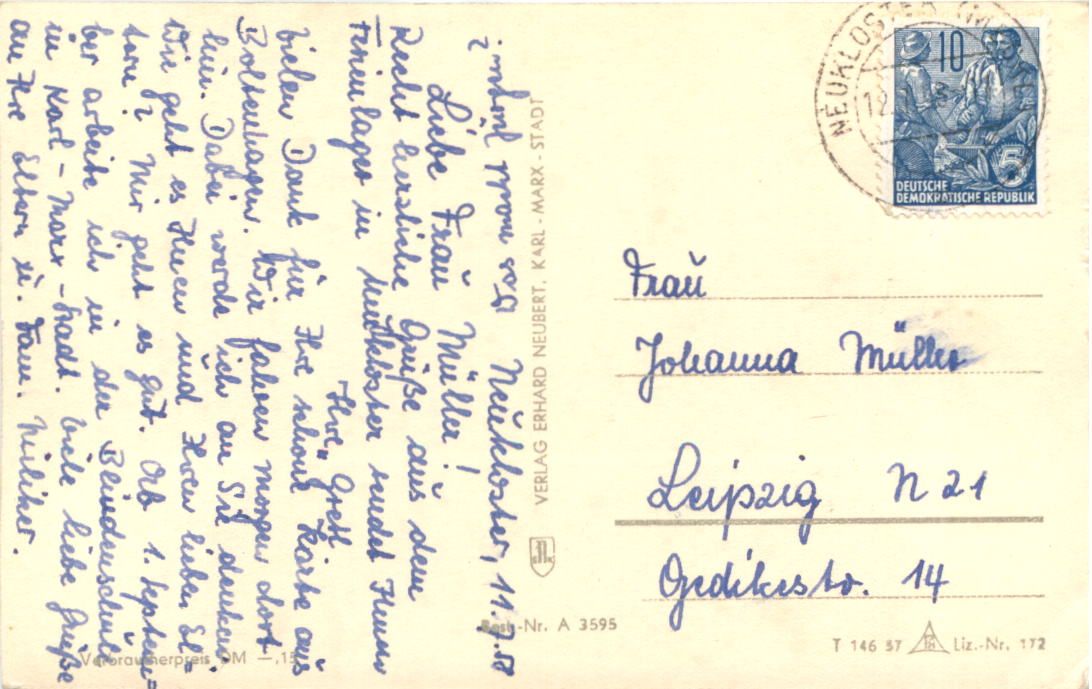 Neukloster, 11.7.58
Liebe Frau Müller!
Recht herzliche Grüße aus dem
Ferienlager in Neukloster sendet Ihnen
Ihre „Gretl“
vielen Dank für Ihre schöne Karte aus
Boltenhagen. Wir fahren morgen dort
hin. Dabei werde ich an Sie denken.
Wie geht es Ihnen und Ihren lieben El=
tern? Mir geht es gut. Ab 1. Septem=
ber arbeite ich in der Blindenschule
in Karl-Marx-Stadt. Viele liebe Grüße
an Ihre Eltern u. Fam.
VERLAG ERHARD NEUBERT, KARL-MARX-STADT
NEUKLOSTER
12
10
5
DEUTSCHE
DEMOKRATISCHE REPUBLIK
Frau
Johanna Müller
Leipzig N 21
Gedikestr. 14
Best-Nr. A 3595
Verbraucherpreis DM —,15
T 146 57
Liz.-Nr. 172